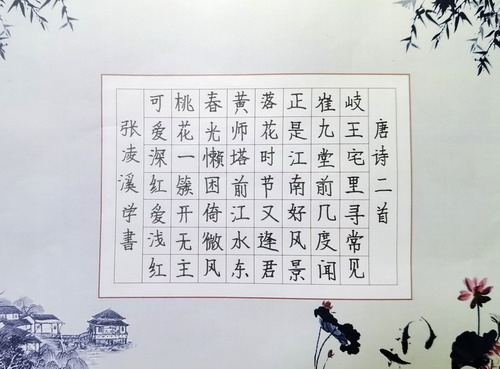 唐诗二首
岐王宅里寻常见
崔九堂前几度闻
正是江南好风景
落花时节又逢君
黄师塔前江水东
春光懒困倚微风
桃花一簇开无主
可爱深红爱浅红
张凌溪学書